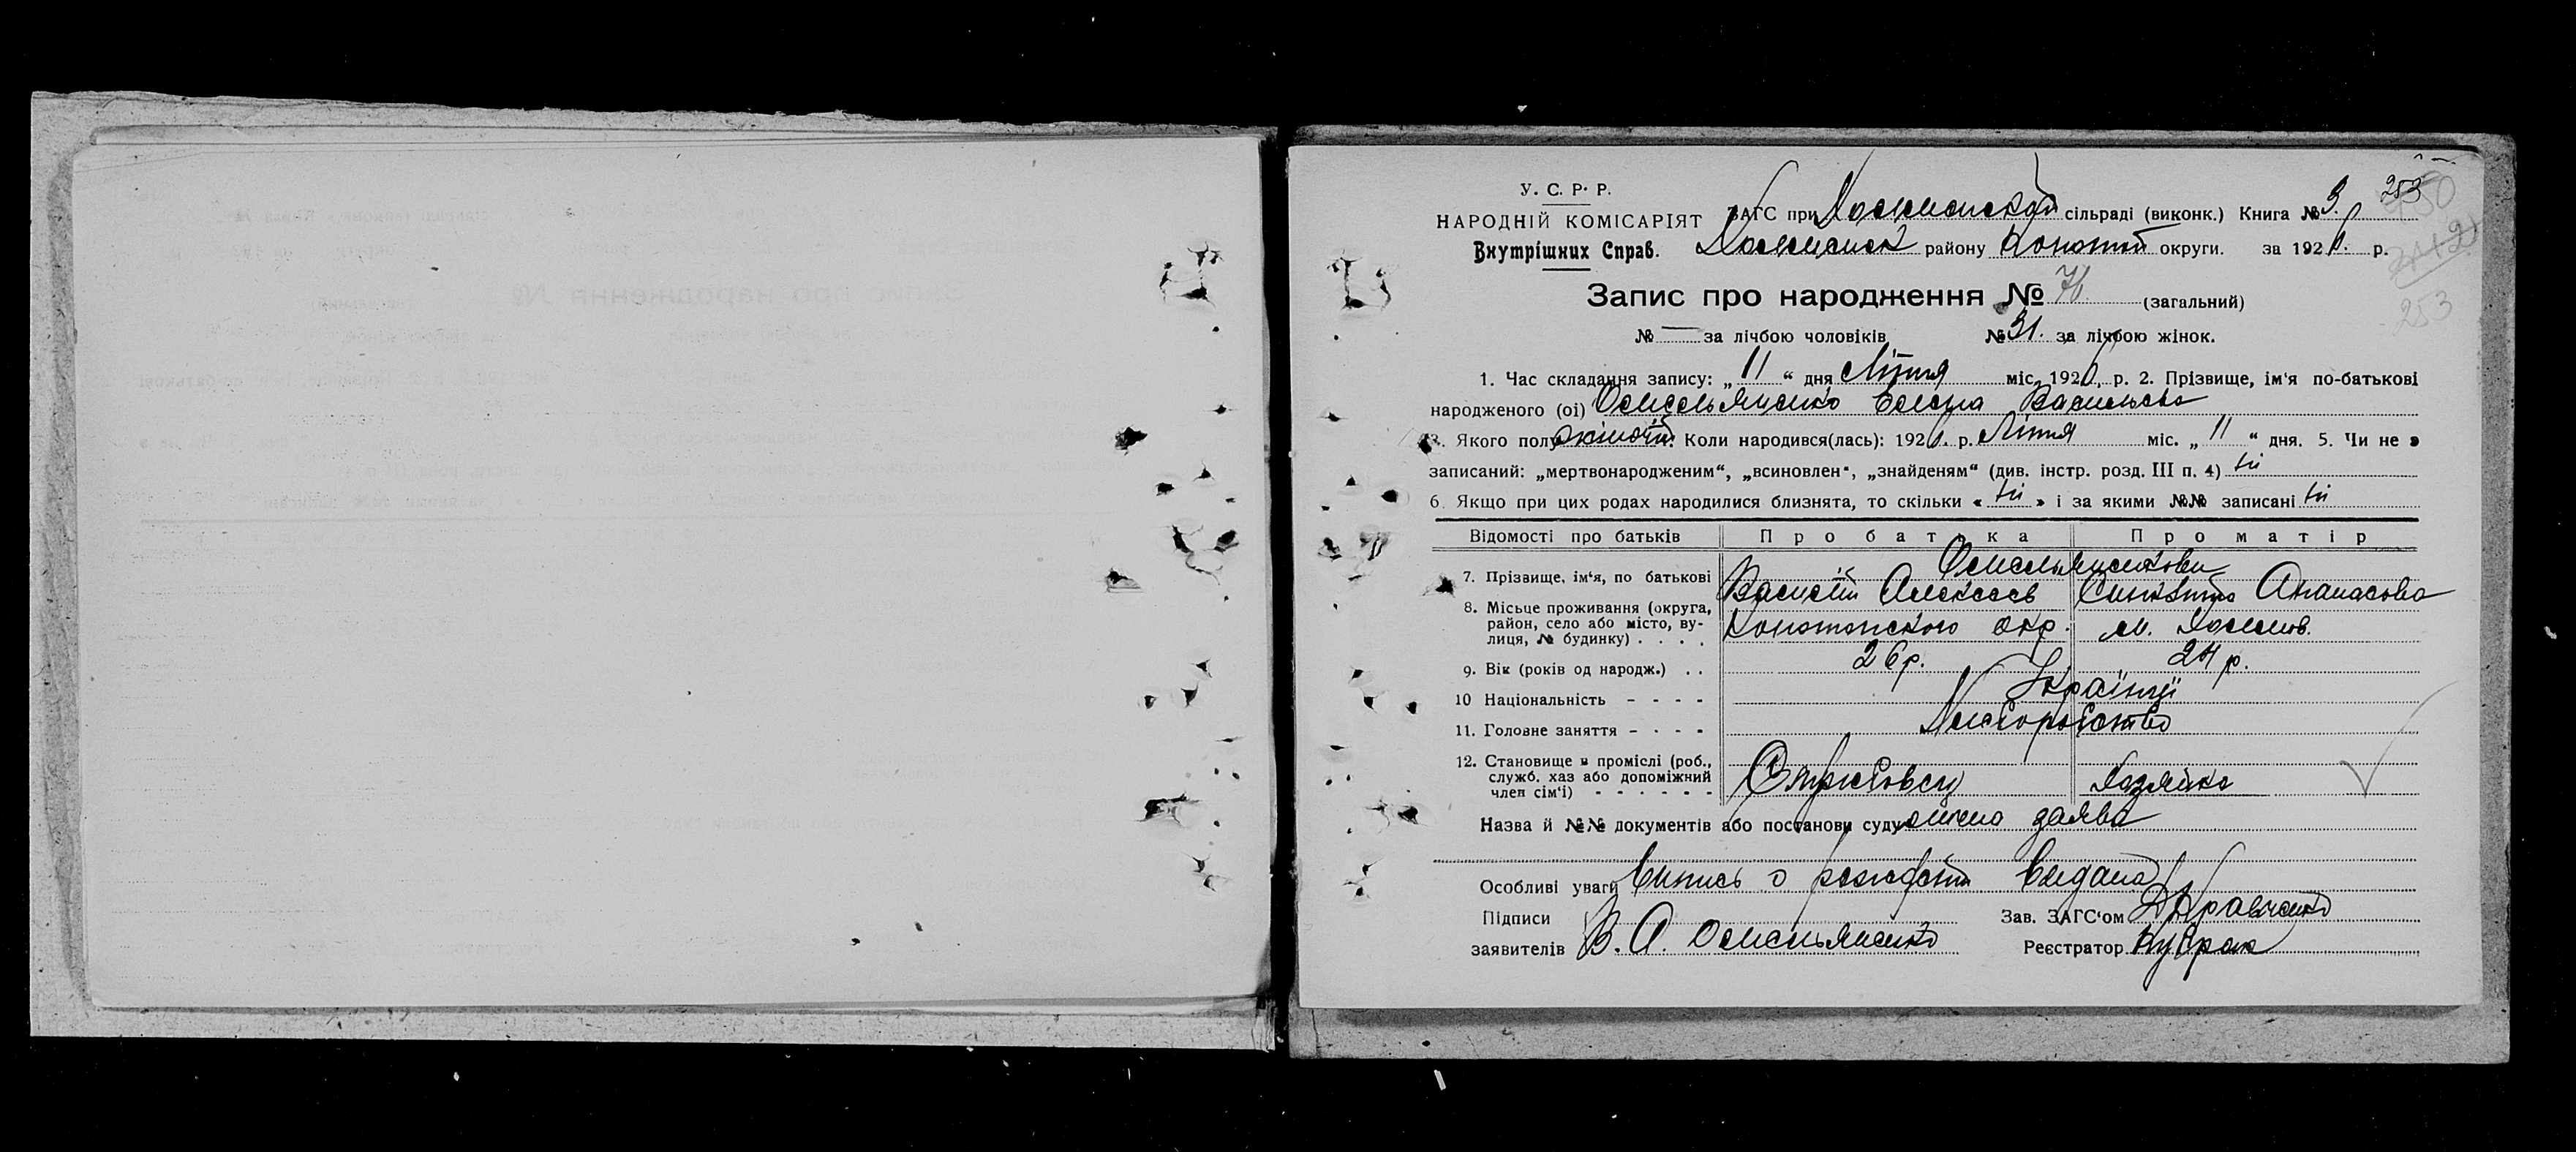 253
У. С. Р. Р.
НАРОДНІЙ КОМІСАРІЯТ ЗАГС при сільраді (виконк.) Книга № 3.
Внутрішних Справ. району Конотоп округи. за 192 р.
Запис про народження № 76 (загальний)
253
№ — за лічбою чоловіків № 31. за лічбою жінок.
1. Час складання запису: „ 11 “ дня Літня міс. 192 р. 2. Прізвище, ім‘я по-батькові
народженого (ої) Омельяненко Елена Васильева
3. Якого полу жіночій. Коли народився(лась): 192 р. Літня міс. „ 11 “ дня. 5. Чи не є
записаний: „мертвонародженим“, „всиновлен“, „знайденям“ (див. інстр. розд. III п. 4) ні
6. Якщо при цих родах народилися близнята, то скільки « ні » і за якими №№ записані ні
Відомості про батьків Про батька Про матір
Омельяненкови
7. Прізвище, ім‘я, по батькові Василій Алексеев Афанасова
8. Місце проживання (округа,
район, село або місто, ву-
лиця, № будинку) . . . . Конотопского окр. м.
9. Вік (років од народж.) . . 26 р. 24 р.
10 Національність - - - - Українці
11. Головне заняття - - - - Хліборобство
12. Становище в проміслі (роб.,
служб. хаз або допоміжний
член сім‘ї) - - - - - - Хазяйка
Назва й №№ документів або постанови суду заява
Особливі уваги Випись о видана
Підписи Зав. ЗАГС‘ом Кравченко
заявителів В. А. Омельяненко Реєстратор Кубрак